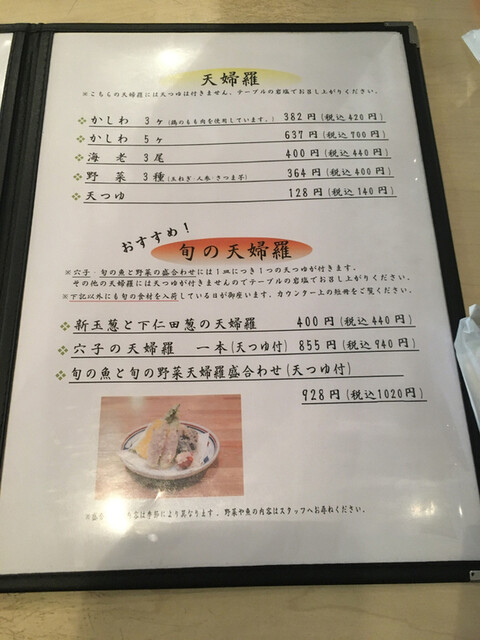 天婦羅
※こちらの天婦羅には天つゆは付きません。テーブルの岩塩でお召し上がりください。
かしわ 3ヶ(鶏のもも肉を使用しています。) 382円(税込420円)
かしわ 5ヶ 637円(税込700円)
海老 3尾 400円(税込440円)
野菜 3種(玉ねぎ・人参・さつま芋) 364円(税込400円)
天つゆ 128円(税込140円)
おすすめ!
旬の天婦羅
※穴子・旬の魚と野菜の盛合わせには1皿につき1つの天つゆが付きます。
その他の天婦羅には天つゆが付きませんのでテーブルの岩塩でお召し上がりください。
※下記以外にも旬の食材を入荷している日が御座います。カウンター上の短冊をご覧ください。
新玉葱と下仁田葱の天婦羅 400円(税込440円)
穴子の天婦羅 一本(天つゆ付) 855円(税込940円)
旬の魚と旬の野菜天婦羅盛合わせ(天つゆ付)
928円(税込1020円)
内容は季節により異なります。野菜や魚の内容はスタッフへお尋ねください。